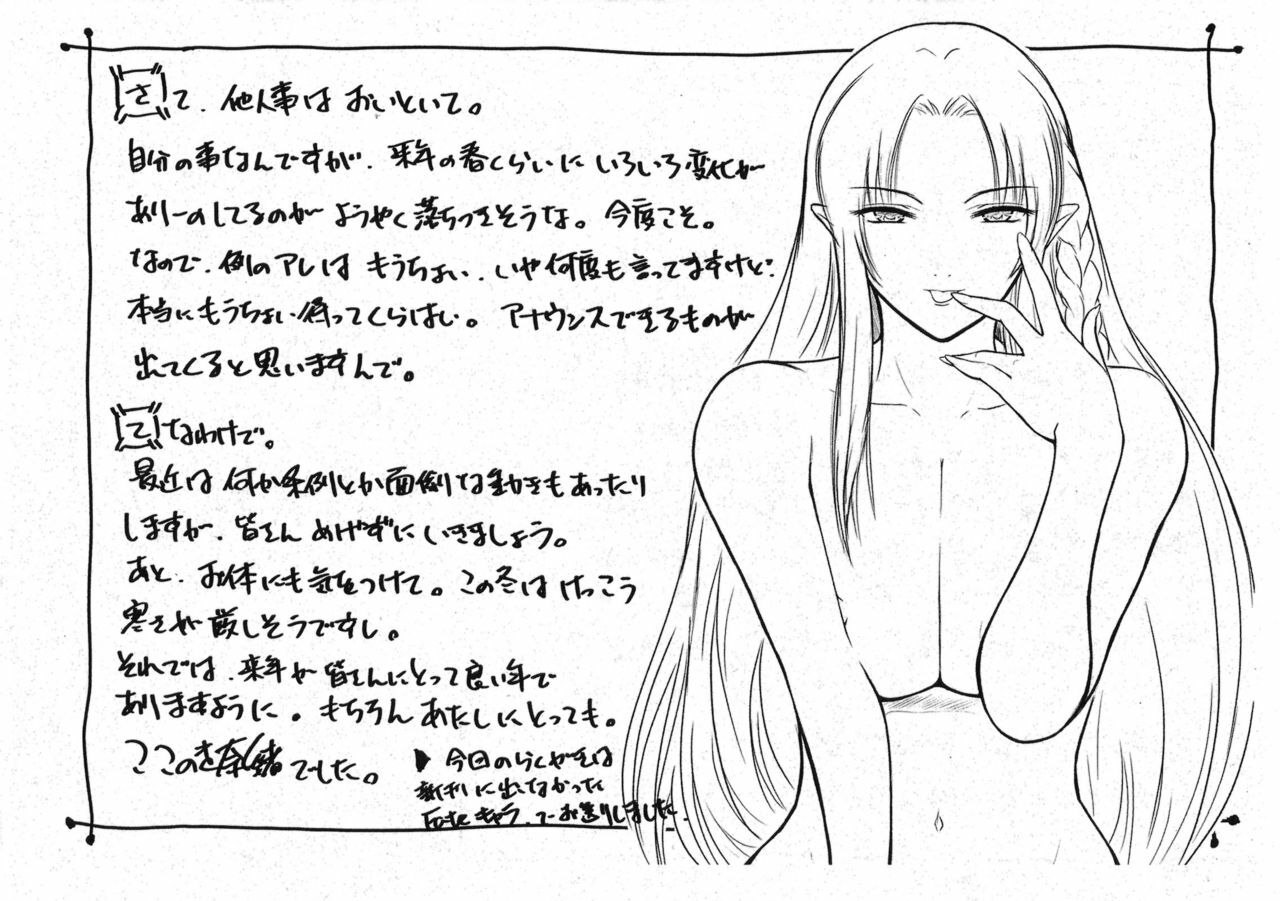 さて、他人事はおいといて。
自分の事なんですが、来年の春くらいにいろいろ変化が
ありーのしてるのがようやく落ちつきそうな。今度こそ。
なので、例のアレはもうちょい、いや何度も言ってますけど
本当にもうちょい待ってくらはい。アナウンスできるものが
出てくると思いますんで。
てなわけで。
最近は何か条例とか面倒な動きもあったり
しますが、皆さんめげずにいきましょう。
あと、お体にも気をつけて。この冬はけっこう
寒さが厳しそうですし。
それでは、来年が皆さんにとって良い年で
ありますように。もちろんあたしにとっても。
ここのき奈緒でした。
▶今回のらくがきは
新刊に出なかった
Fateキャラ、でお送りしました。